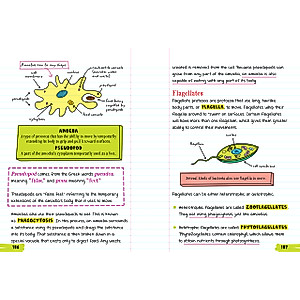 Amoebas can be any shape.
cell
membrane
nucleus
pseudopod
AMOEBA
A type of protozoa that has the ability to move by temporarily
extending its body to grip and pull it toward surfaces.
PSEUDOPOD
A part of the amoeba's cytoplasm temporarily used as a foot.
Pseudopod comes from the Greek words pseudes,
meaning "false," and pous meaning "feet."
Pseudopods are "false feet" referring to the temporary
extension of the amoeba's body that is used to move.
Amoebas also use their pseudopods to eat. This is known
as PHAGOCYTOSIS. In the process, an amoeba surrounds
a substance using its pseudopods and drags the substance
into its body. That substance is then broken down in a
special vacuole that exists only to digest food. Any waste
196
created is removed from the cell. Because pseudopods can
grow from any part of the amoeba, an amoeba is also
capable of eating with any part of its body.
Flagellates
Flagellate protozoa are protozoa that use long, hairlike
body parts, or FLAGELLA, to move. Flagellates whip their
flagella around to travel on surfaces. Certain flagellates
will have more than one flagellum, which gives them special
ability to control their movement.
flagellum
Several kinds of bacteria also use flagella to move.
Flagellates can be either heterotrophic or autotrophic.
Heterotrophic flagellates are called ZOOFLAGELLATES.
They do not using photosynthesis, just like amoebas.
Autotrophic flagellates are called PHYTOFLAGELLATES.
Phytoflagellates contain chlorophyll, which allows them
to obtain nutrients through photosynthesis.
197